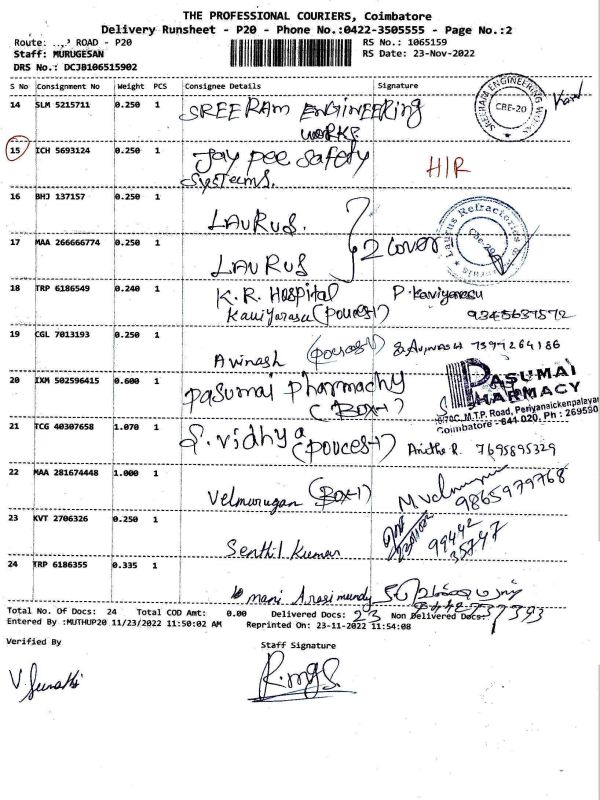 THE PROFESSIONAL COURIERS, Coimbatore
Delivery Runsheet - P20 - Phone No.:0422-3505555 - Page No.:2
Route: ROAD - P20 RS No.: 1065159
Staff: MURUGESAN RS Date: 23-Nov-2022
DRS No.: DCJB106515902
S No Consignment No Weight PCS Consignee Details Signature
14 SLM 5215711 0.250 1 SREERAM ENGINEERING
WORKS. CBE-20
15 ICH 5693124 0.250 1 Jay pee Safety
Systems. H/R
16 BHJ 137157 0.250 1
LAURUS. Laurus Refractories
2 cover CBE-20
17 MAA 266666774 0.250 1
LAURUS
18 TRP 6186549 0.240 1 K.R. Hospital P. Kaviyarasu
Kaviyarasu 9345637572
19 CGL 7013193 0.250 1
Avinash 7397264186
20 IXM 502596415 0.600 1 pasumai pharmachy PASUMAI
(BOX-1) PHARMACY
M.T.P. Road, Periyanaickenpalayam
Coimbatore - 641 020. Ph : 269580
21 TCG 40307658 1.070 1 S. vidhya
Anitha R. 7695895329
22 MAA 281674448 1.000 1
Velmurugan (BOX-1) 9865979768
23 KVT 2706326 0.250 1
Senthil Kumar 99442
35747
24 TRP 6186355 0.335 1
Total No. Of Docs: 24 Total COD Amt: 0.00 Delivered Docs: 23 Non Delivered Docs:
Entered By :MUTHUP20 11/23/2022 11:50:02 AM Reprinted On: 23-11-2022 11:54:08
Verified By Staff Signature